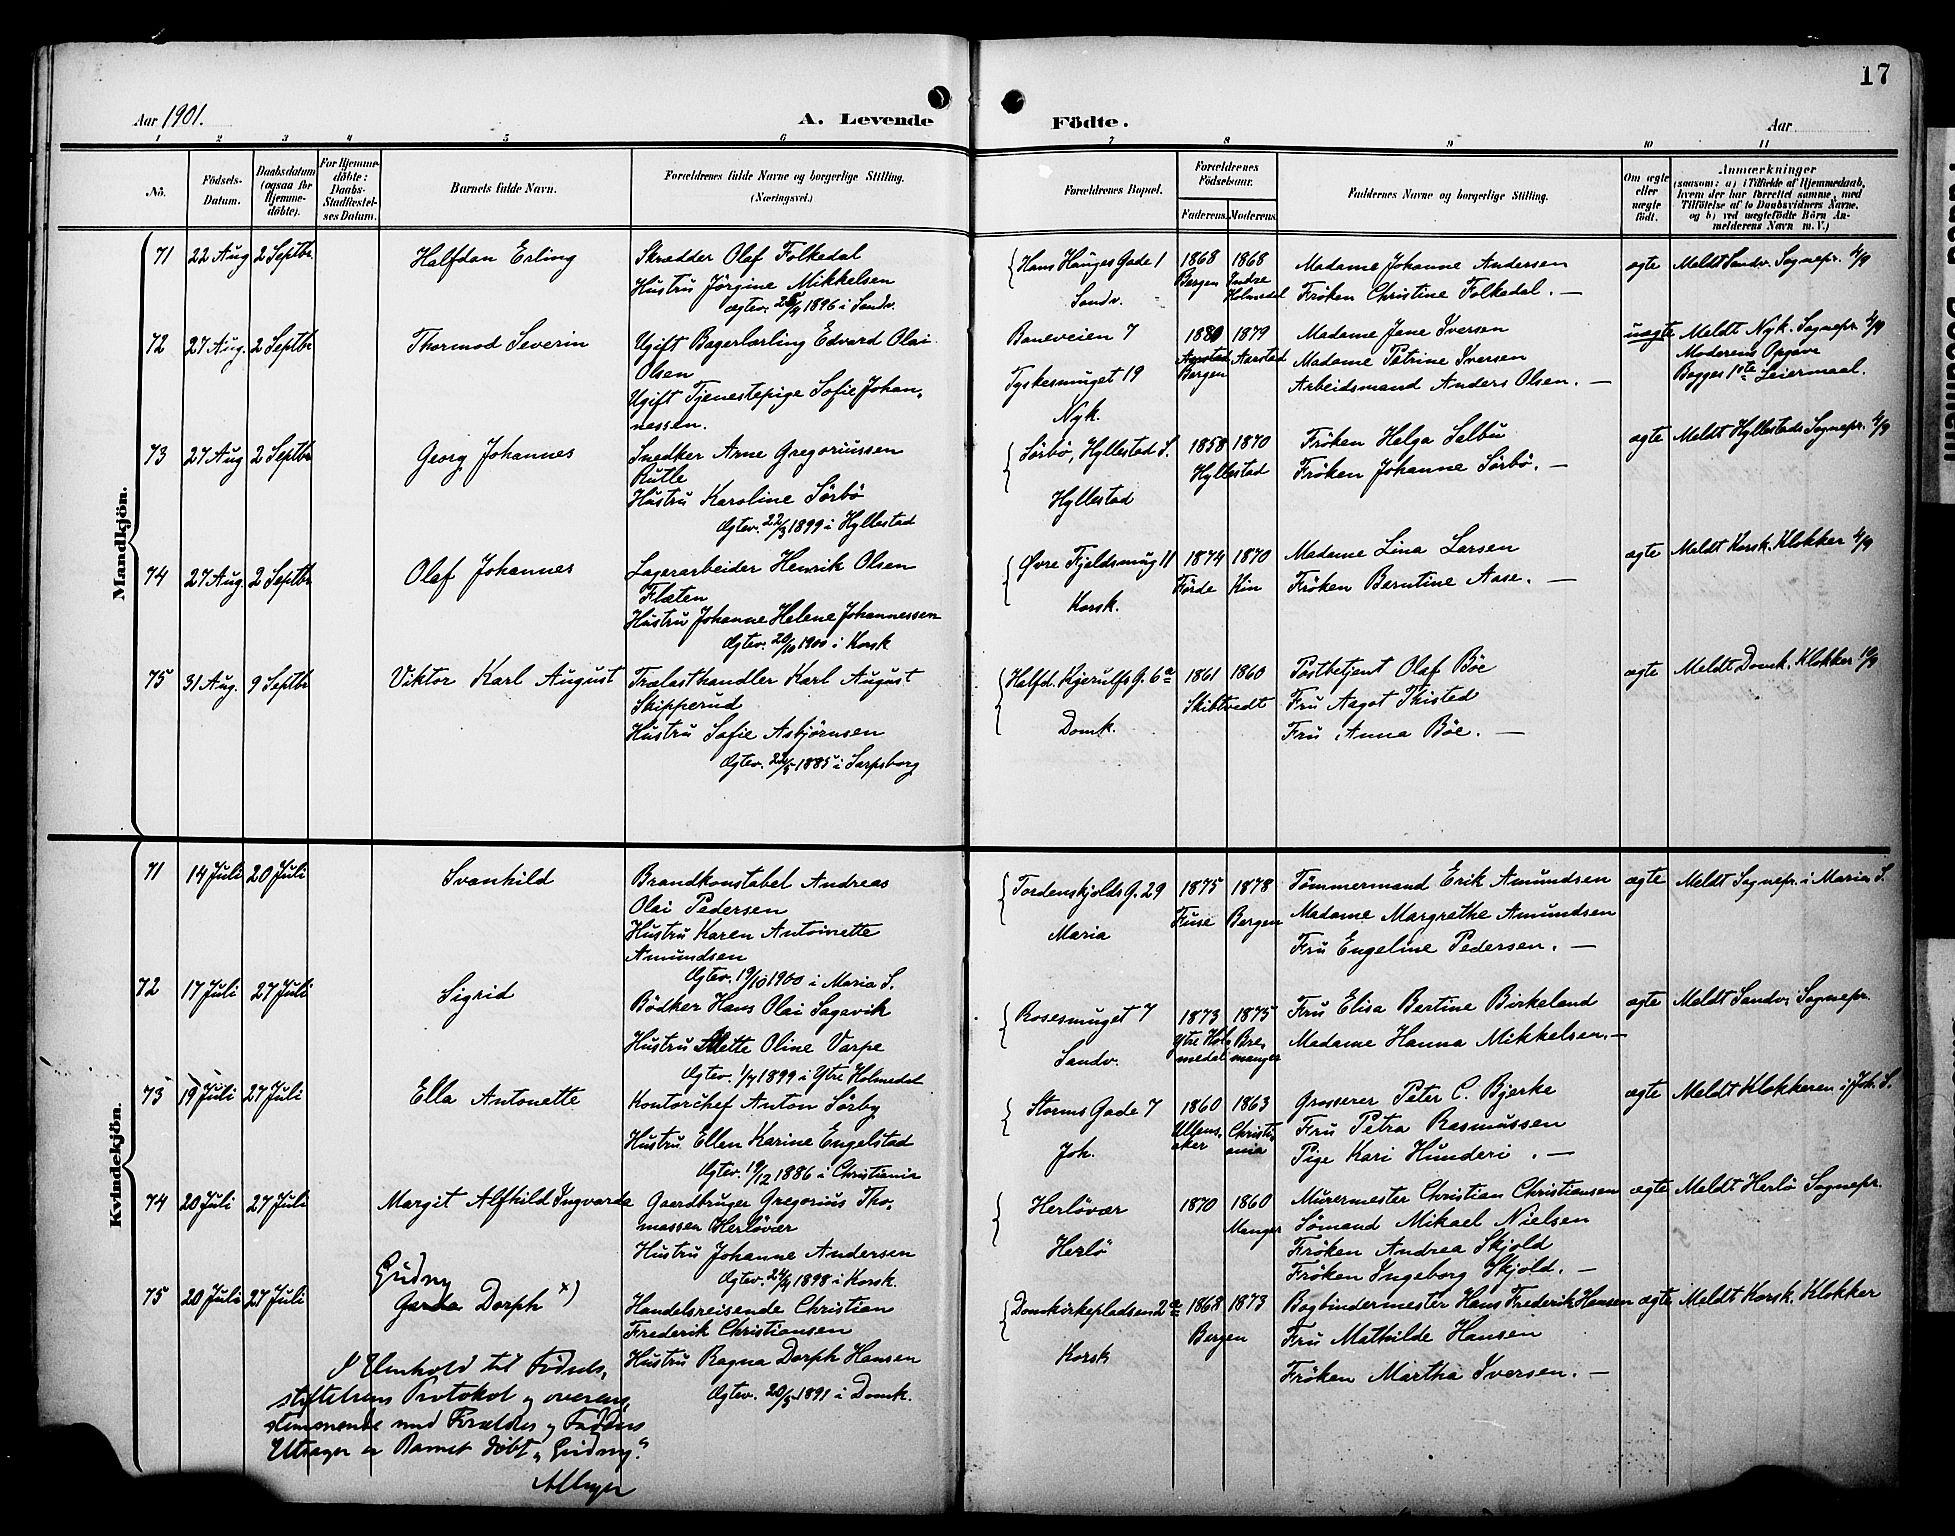 17
Aar 1901. A. Levende Födte. Aar
1 2 3 4 5 6 7 8 9 10 11
No. Födsels-Datum. Daabsdatum (ogsaa for Hjemme-döbte). For Hjemme-döbte: Daabs-Stadfæstel-ses Datum. Barnets fulde Navn. Forældrenes fulde Navne og borgerlige Stilling. (Næringsvei.) Forældrenes Bopæl. Forældrenes Födselsaar. Faderens. Moderens. Faddernes Navne og borgerlige Stilling. Om ægte eller uægte födt. Anmærkninger (saasom: a) i Tilfælde af Hjemmedaab, hvem der har forrettet samme, med Tilföielse af to Daabsvidners Navne, og b) ved uægtefödte Börn An-melderens Navn m. V.)
Mandkjön.
71 22 Aug 2 Septbr. Halfdan Erling Skrædder Olaf Folkedal
Hustru Jørgine Mikkelsen
Ægtev. 26/4 1896 i Sandv.
Hans Hauges Gade 1
Sandv.
1868 Bergen 1868 Indre Holmedal
Madame Johanne Andersen
Frøken Christine Folkedal. —
ægte Meldt Sandv. Sognepr. 4/9
72 27 Aug. 2 Septbr Thormod Severin Ugift Bagerlærling Edvard Olai
Olsen
Ugift Tjenestepige Sofie Johan-
nessen.
Baneveien 7
Tyskesmuget 19
Nyk.
1880 Aarstad Bergen 1879 Aarstad
Madame Jane Iversen
Madame Petrine Iversen
Arbeidsmand Anders Olsen. —
uægte Meldt Nyk. Sognepr. 4/9
Moderens Opgave
Begges 1ste Leiermaal.
73 27 Aug 2 Septbr Georg Johannes Snedker Arne Gregoriussen
Rutle
Hustru Karoline Sørbø
Ægtev. 22/3 1899 i Hyllestad
Sørbø, Hyllestad S.
Hyllestad
1858 1870
Hyllestad
Frøken Helga Selbu
Frøken Johanne Sørbø. —
ægte Meldt Hyllestads Sognepr. 4/9
74 27 Aug. 2 Septbr Olaf Johannes Lagerarbeider Henrik Olsen
Flæten
Hustru Johanne Helene Johannessen
Ægtev. 20/10 1900 i Korsk
Øvre Fjeldsmug 11
Korsk.
1874 Førde 1870 Kin
Madame Lina Larsen
Frøken Berntine Aase. —
ægte Meldt Korsk. Klokker 4/9
75 31 Aug. 9 Septbr Viktor Karl August Trælasthandler Karl August
Skipperud
Hustru Sofie Asbjørnsen
Ægtev. 22/5 1885 i Sarpsborg
Halfd. Kjerulfs G. 6a
Domk.
1861 1860
Skibtvedt
Postbetjent Olaf Bøe
Fru Aagot Thisted
Fru Anna Bøe. —
ægte Meldt Domk. Klokker 10/9
Kvindekjön.
71 14 Juli 20 Juli Svanhild Brandkonstabel Andreas
Olai Pedersen
Hustru Karen Antoinette
Amundsen
Ægtev. 19/10 1900 i Maria S.
Tordenskjolds G. 29
Maria
1875 Fuse 1878 Bergen
Tømmermand Erik Amundsen
Madame Margrethe Amundsen
Fru Engeline Pedersen. —
ægte Meldt Sognepr. i Maria S.
72 17 Juli 27 Juli Sigrid Bødker Hans Olai Sagevik
Hustru Mette Oline Varpe
Ægtev. 1/4 1899 i Ytre Holmedal
Rosesmuget 7
Sandv.
1873 Ytre Holmedal 1875 Bremanger
Fru Elisa Bertine Birkeland
Madame Hanna Mikkelsen. —
ægte Meldt Sandv. Sognepr.
73 19 Juli 27 Juli Ella Antonette Kontorchef Anton Sørby
Hustru Ellen Karine Engelstad
Ægtev. 19/12 1886 i Christiania
Storms Gade 7
Joh.
1860 Ullensaker 1863 Christiania
Grosserer Peter C. Bjerke
Fru Petra Rasmussen
Pige Kari Hunderi. —
ægte Meldt Klokkeren i Joh. S.
74 20 Juli 27 Juli Margit Alfhild Ingvarda Gaardbruger Gregorius Tho-
massen Herløvær
Hustru Johanne Andersen
Ægtev. 24/4 1898 i Korsk.
Herløvær
Herlø
1870 1860
Manger
Murermester Christian Christiansen
Sømand Mikael Nielsen
Frøken Andrea Skjold
Frøken Ingeborg Skjold. —
ægte Meldt Herlø Sognepr.
75 20 Juli 27 Juli Gudny
Gerda Dorph x) Handelsreisende Christian
Frederik Christiansen
Hustru Ragna Dorph Hansen
Ægtev. 20/5 1891 i Domk.
Domkirkepladsen 2a
Korsk
1868 1873
Bergen
Bogbindermester Hans Frederik Hansen
Fru Mathilde Hansen
Frøken Martha Iversen. —
ægte Meldt Korsk. Klokker
I Henhold til Fødsels-
stiftelsens Protokol og overens-
stemmende med Forældres og Faddres
Udsagn er Barnet døbt „Gudny".